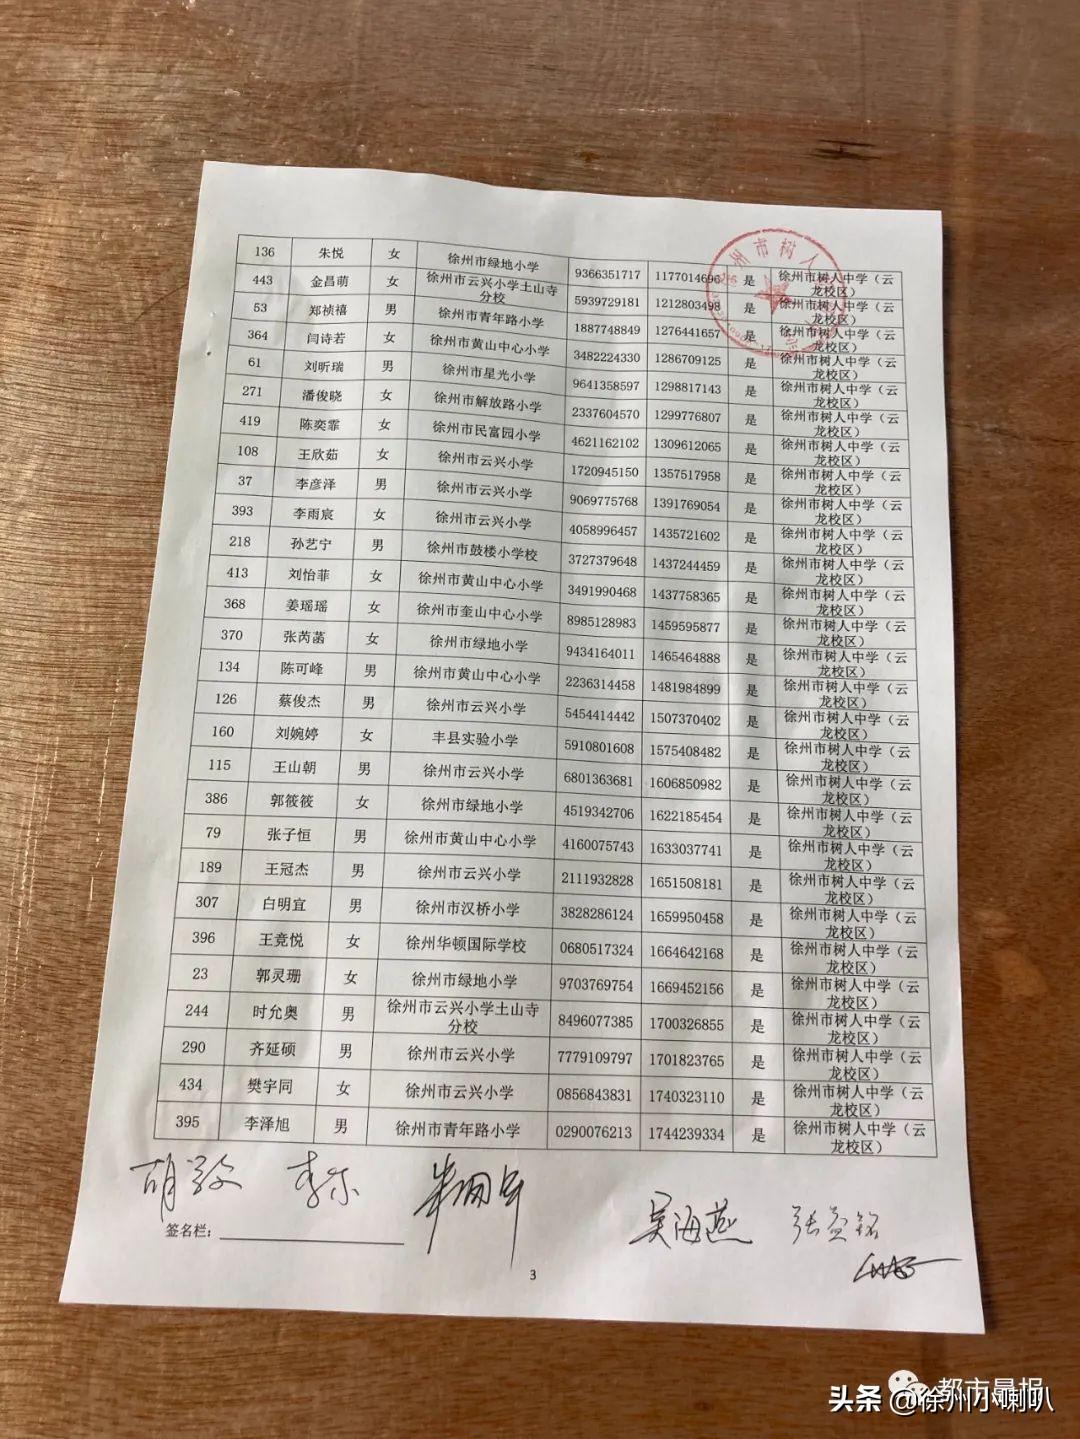 136 朱悦 女 徐州市绿地小学 9366351717 1177014696 是 徐州市树人中学（云
龙校区）
443 金昌萌 女 徐州市云兴小学土山寺
分校 5939729181 1212803498 是 徐州市树人中学（云
龙校区）
53 郑祯禧 男 徐州市青年路小学 1887748849 1276441657 是 徐州市树人中学（云
龙校区）
364 闫诗若 女 徐州市黄山中心小学 3482224330 1286709125 是 徐州市树人中学（云
龙校区）
61 刘昕瑞 男 徐州市星光小学 9641358597 1298817143 是 徐州市树人中学（云
龙校区）
271 潘俊晓 女 徐州市解放路小学 2337604570 1299776807 是 徐州市树人中学（云
龙校区）
419 陈奕霏 女 徐州市民富园小学 4621162102 1309612065 是 徐州市树人中学（云
龙校区）
108 王欣茹 女 徐州市云兴小学 1720945150 1357517958 是 徐州市树人中学（云
龙校区）
37 李彦泽 男 徐州市云兴小学 9069775768 1391769054 是 徐州市树人中学（云
龙校区）
393 李雨宸 女 徐州市云兴小学 4058996457 1435721602 是 徐州市树人中学（云
龙校区）
218 孙艺宁 男 徐州市鼓楼小学校 3727379648 1437244459 是 徐州市树人中学（云
龙校区）
413 刘怡菲 女 徐州市黄山中心小学 3491990468 1437758365 是 徐州市树人中学（云
龙校区）
368 姜瑶瑶 女 徐州市奎山中心小学 8985128983 1459595877 是 徐州市树人中学（云
龙校区）
370 张芮菡 女 徐州市绿地小学 9434164011 1465464888 是 徐州市树人中学（云
龙校区）
134 陈可峰 男 徐州市黄山中心小学 2236314458 1481984899 是 徐州市树人中学（云
龙校区）
126 蔡俊杰 男 徐州市云兴小学 5454414442 1507370402 是 徐州市树人中学（云
龙校区）
160 刘婉婷 女 丰县实验小学 5910801608 1575408482 是 徐州市树人中学（云
龙校区）
115 王山朝 男 徐州市云兴小学 6801363681 1606850982 是 徐州市树人中学（云
龙校区）
386 郭筱筱 女 徐州市绿地小学 4519342706 1622185454 是 徐州市树人中学（云
龙校区）
79 张子恒 男 徐州市黄山中心小学 4160075743 1633037741 是 徐州市树人中学（云
龙校区）
189 王冠杰 男 徐州市云兴小学 2111932828 1651508181 是 徐州市树人中学（云
龙校区）
307 白明宜 男 徐州市汉桥小学 3828286124 1659950458 是 徐州市树人中学（云
龙校区）
396 王竞悦 女 徐州华顿国际学校 0680517324 1664642168 是 徐州市树人中学（云
龙校区）
23 郭灵珊 女 徐州市绿地小学 9703769754 1669452156 是 徐州市树人中学（云
龙校区）
244 时允奥 男 徐州市云兴小学土山寺
分校 8496077385 1700326855 是 徐州市树人中学（云
龙校区）
290 齐延硕 男 徐州市云兴小学 7779109797 1701823765 是 徐州市树人中学（云
龙校区）
434 樊宇同 女 徐州市云兴小学 0856843831 1740323110 是 徐州市树人中学（云
龙校区）
395 李泽旭 男 徐州市青年路小学 0290076213 1744239334 是 徐州市树人中学（云
龙校区）
吴海燕 张益铭
签名栏：
3
都市晨报
头条 @徐州小喇叭